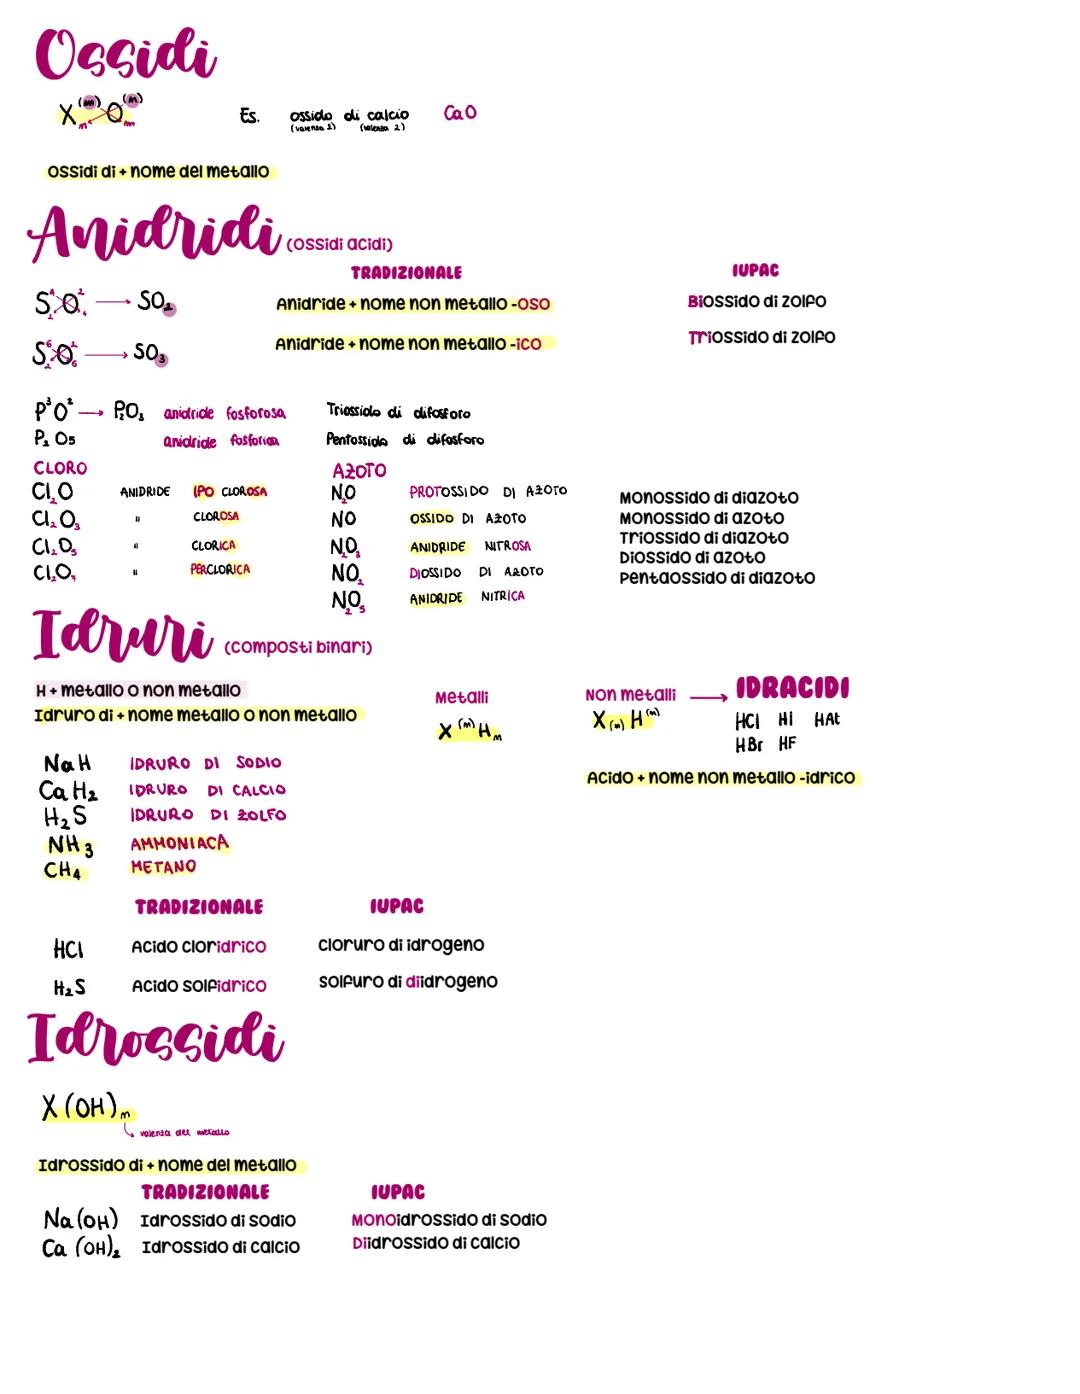 Ossidi
X(m) O(n) n m
Es. ossido di calcio CaO
(valenza 2) (valenza 2)
Ossidi di + nome del metallo
Anidridi (ossidi acidi)
TRADIZIONALE IUPAC
S⁴O² ₂ ₄ → SO₂ Anidride + nome non metallo -oso Biossido di zolfo
S⁶O² ₂ ₆ → SO₃ Anidride + nome non metallo -ico Triossido di zolfo
P³O² → P₂O₃ anidride fosforosa Triossido di difosforo
P₂O5 anidride fosforica Pentossido di difosforo
CLORO AZOTO
Cl₂O ANIDRIDE IPO CLOROSA N₂O PROTOSSIDO DI AZOTO Monossido di diazoto
Cl₂O₃ " CLOROSA NO OSSIDO DI AZOTO Monossido di azoto
Cl₂O₅ " CLORICA N₂O₃ ANIDRIDE NITROSA Triossido di diazoto
Cl₂O₇ " PERCLORICA NO₂ DIOSSIDO DI AZOTO Diossido di azoto
N₂O₅ ANIDRIDE NITRICA Pentaossido di diazoto
Idruri (composti binari)
H + metallo o non metallo
Idruro di + nome metallo o non metallo
Metalli Non metalli → IDRACIDI
X(m)Hm X(n)H(n) HCl Hi HAt
HBr HF
Acido + nome non metallo -idrico
NaH IDRURO DI SODIO
CaH₂ IDRURO DI CALCIO
H₂S IDRURO DI ZOLFO
NH₃ AMMONIACA
CH₄ METANO
TRADIZIONALE IUPAC
HCl Acido cloridrico cloruro di idrogeno
H₂S Acido solfidrico solfuro di diidrogeno
Idrossidi
X(OH)n
valenza del metallo
Idrossido di + nome del metallo
TRADIZIONALE IUPAC
Na(OH) Idrossido di sodio Monoidrossido di sodio
Ca(OH)₂ Idrossido di calcio Diidrossido di calcio